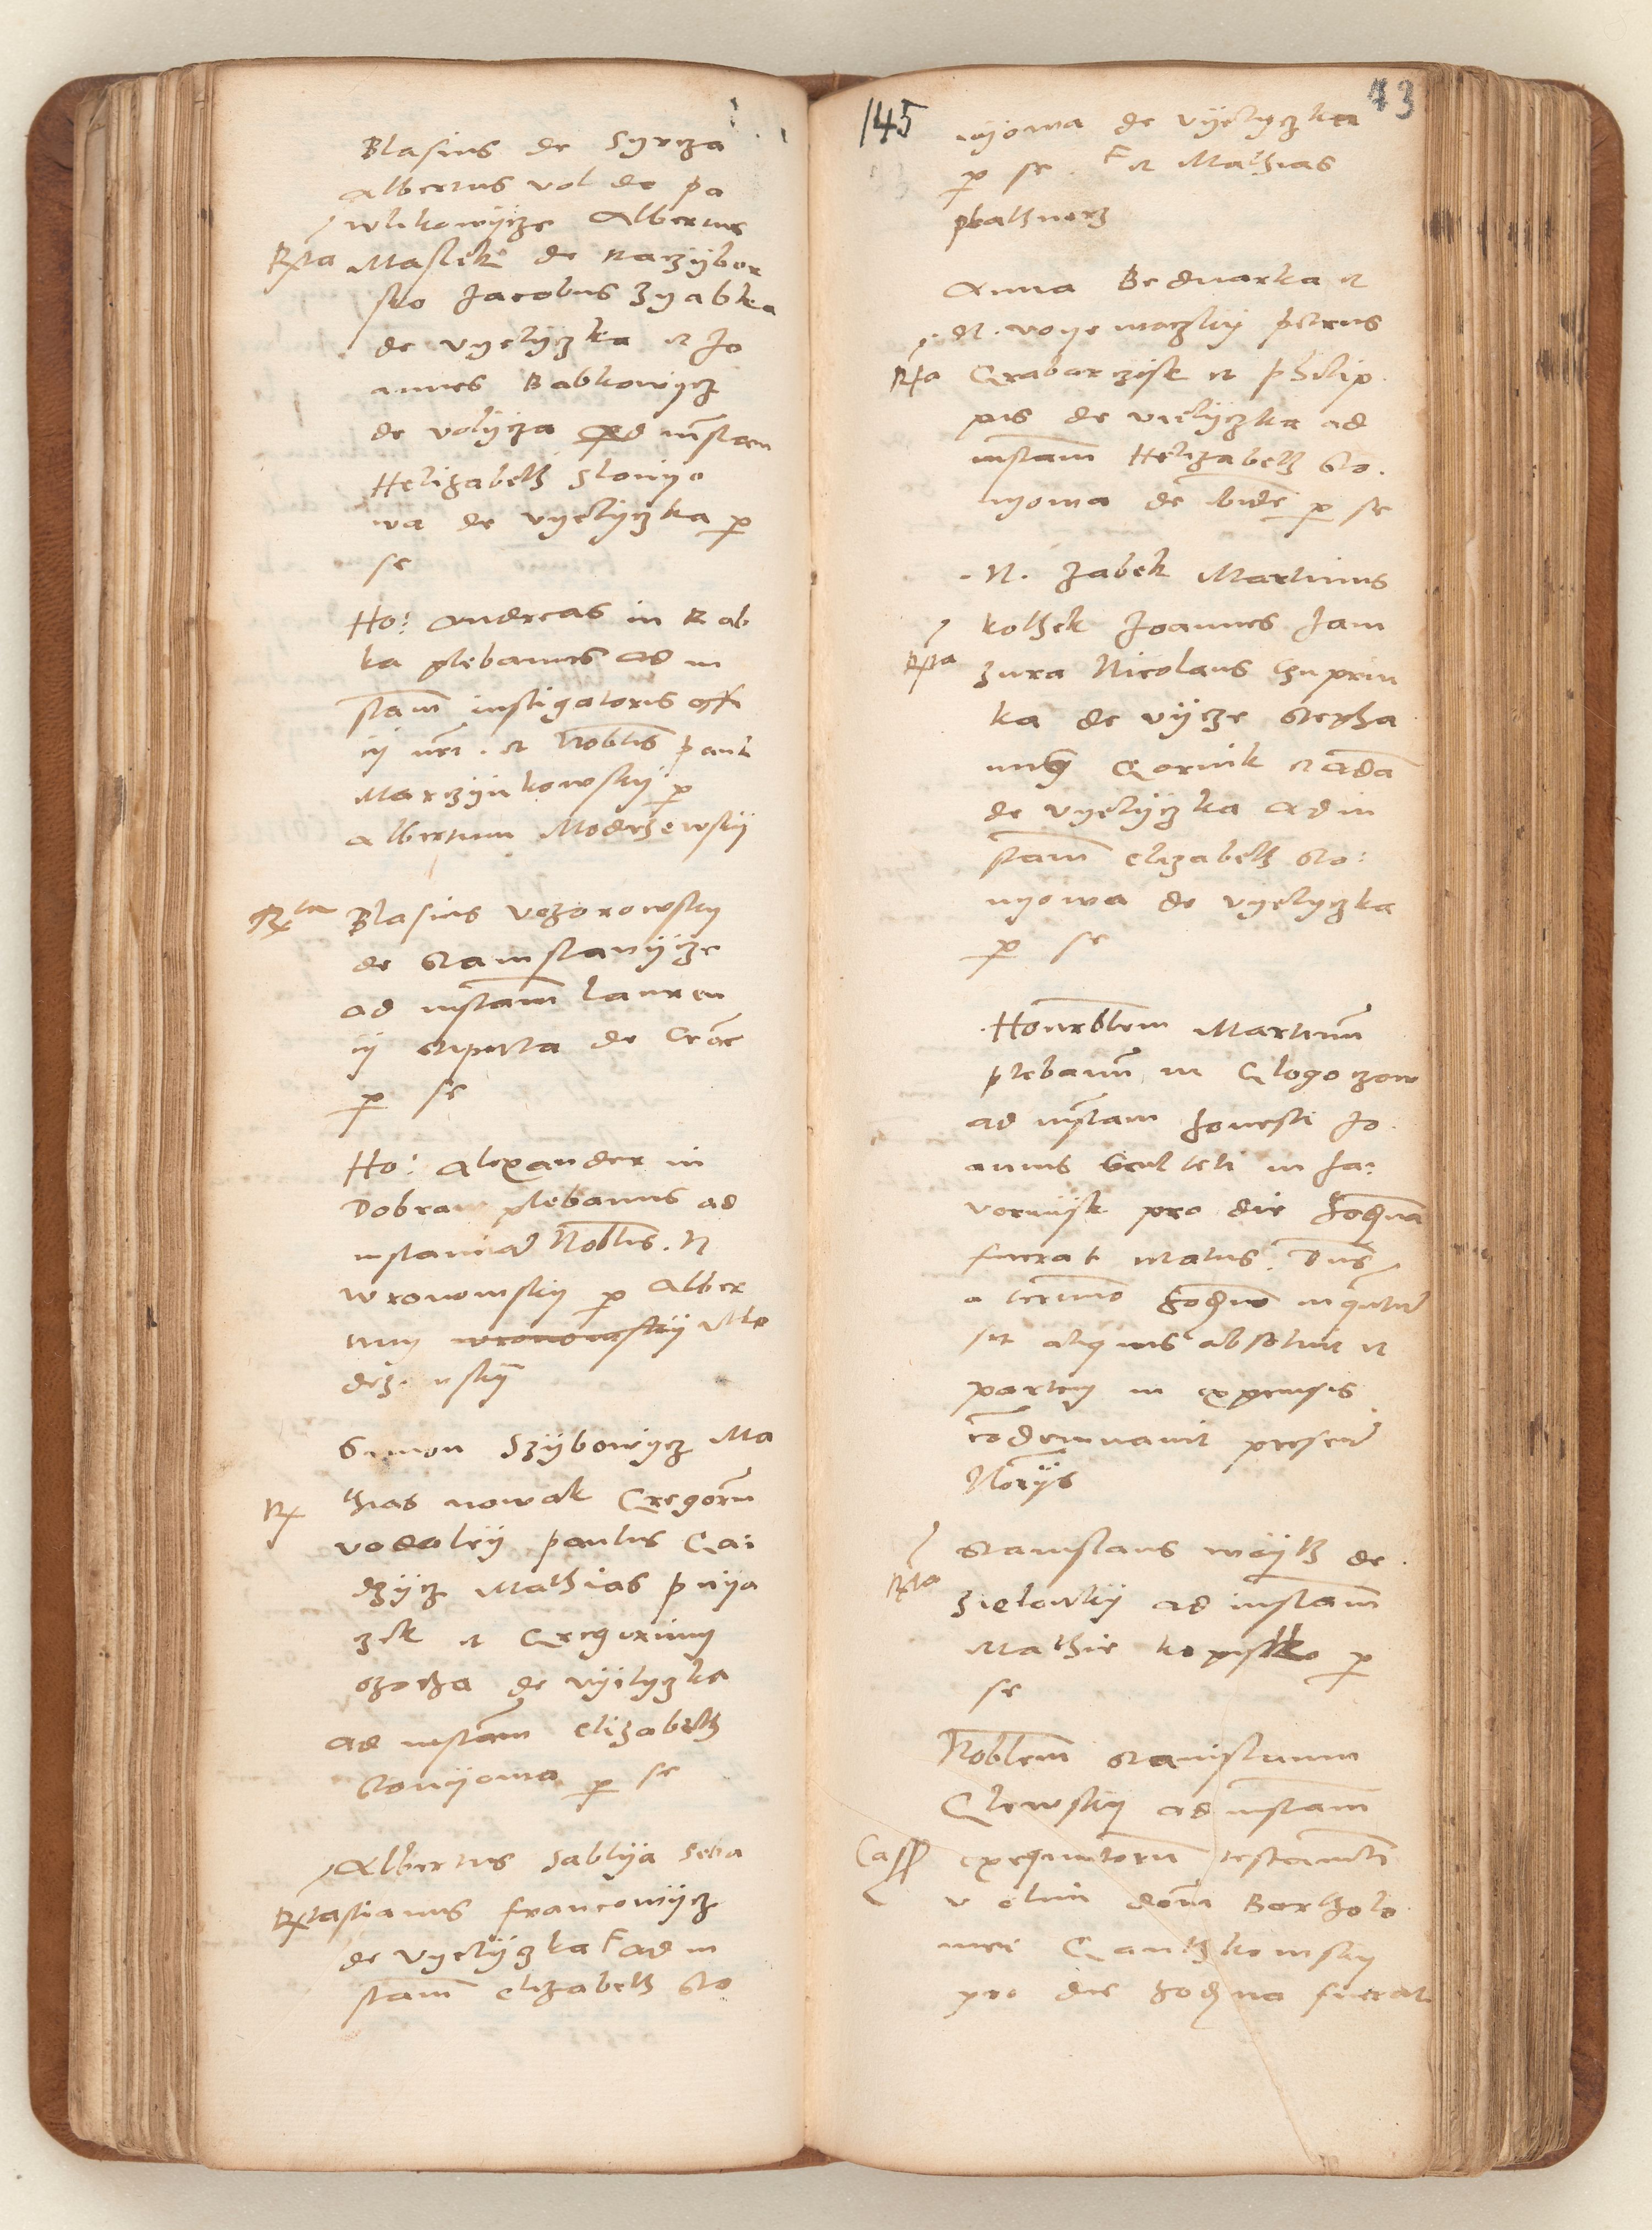 Blasius de Syrcza
Albertus vol de pa
wlikowycze Albertus
Rpta Maslek de Raczybor
sko Jacobus Zyabka
de vyelyczka et Jo
annes Babkowycz
de volycza ad instan
Helizabeth Slonyo
wa de vyelyczka p
se
Ho: Andreas in Rab
ka plebanus ad in
stam instigatoris offi
cij nri. et Noblis pauli
Marczynkowsky p
Albertum Modrzewsky
Rta Blasius vezorowsky
de Stanislavycze
ad instam Lauren
ij de Crac
p se
Ho: Alexander in
Dobra plebanus ad
instancia Noblis. N
Wronowsky p Alber
tum wronowsky Mo
drz. wsky
Simon Szybowycz Ma
R thias nowak Gregorius
vodoley paulus Gai
dzycz Mathias pnya
zek et Gregorium
de vyelyczka
ad instam Elizabeth
Slonyowa p se
Albertus Sablya Seba
Rpta stianus francowycz
de vyelyczka F ad in
stam elizabeth Slo
145
73
nyowa de vyelyczka
p se. F et Mathias
plathnerz
Anna Bednarka et
.N. voyewoczky petrus
Rpta Grabarzisk et philip
pus de vielyczka ad
instam Helizabeth Slo.
nyowa de ibide p se
.N. zabek Martinus
kothek Joannes Jam
Rpta zura Nicolaus Chuprin
ka de vycze Stepha
nus Gornik et ada
de vyelyczka ad in
stam elizabeth Slo:
nyowa de vyelyczka
p se
Honrablem Martinum
plebanum in Glogoczow
ad instam honesti Jo
annis Sculteti in Ja:
vornijk pro die hodierna
fuerat citatus. Dns
a termino hodierno
sit absoluit et
partem in expensis
condemnavit presen
Notarijs
Stanislaus woyth de
Rpta zielonky ad instam
Mathie kopystko p
se
Noblem Stanislaum
Glewsky ad instam
Cass exequutoru testamenti
olim domi Bartholo
mei Ganthkowsky
pro die hodierna fuerat